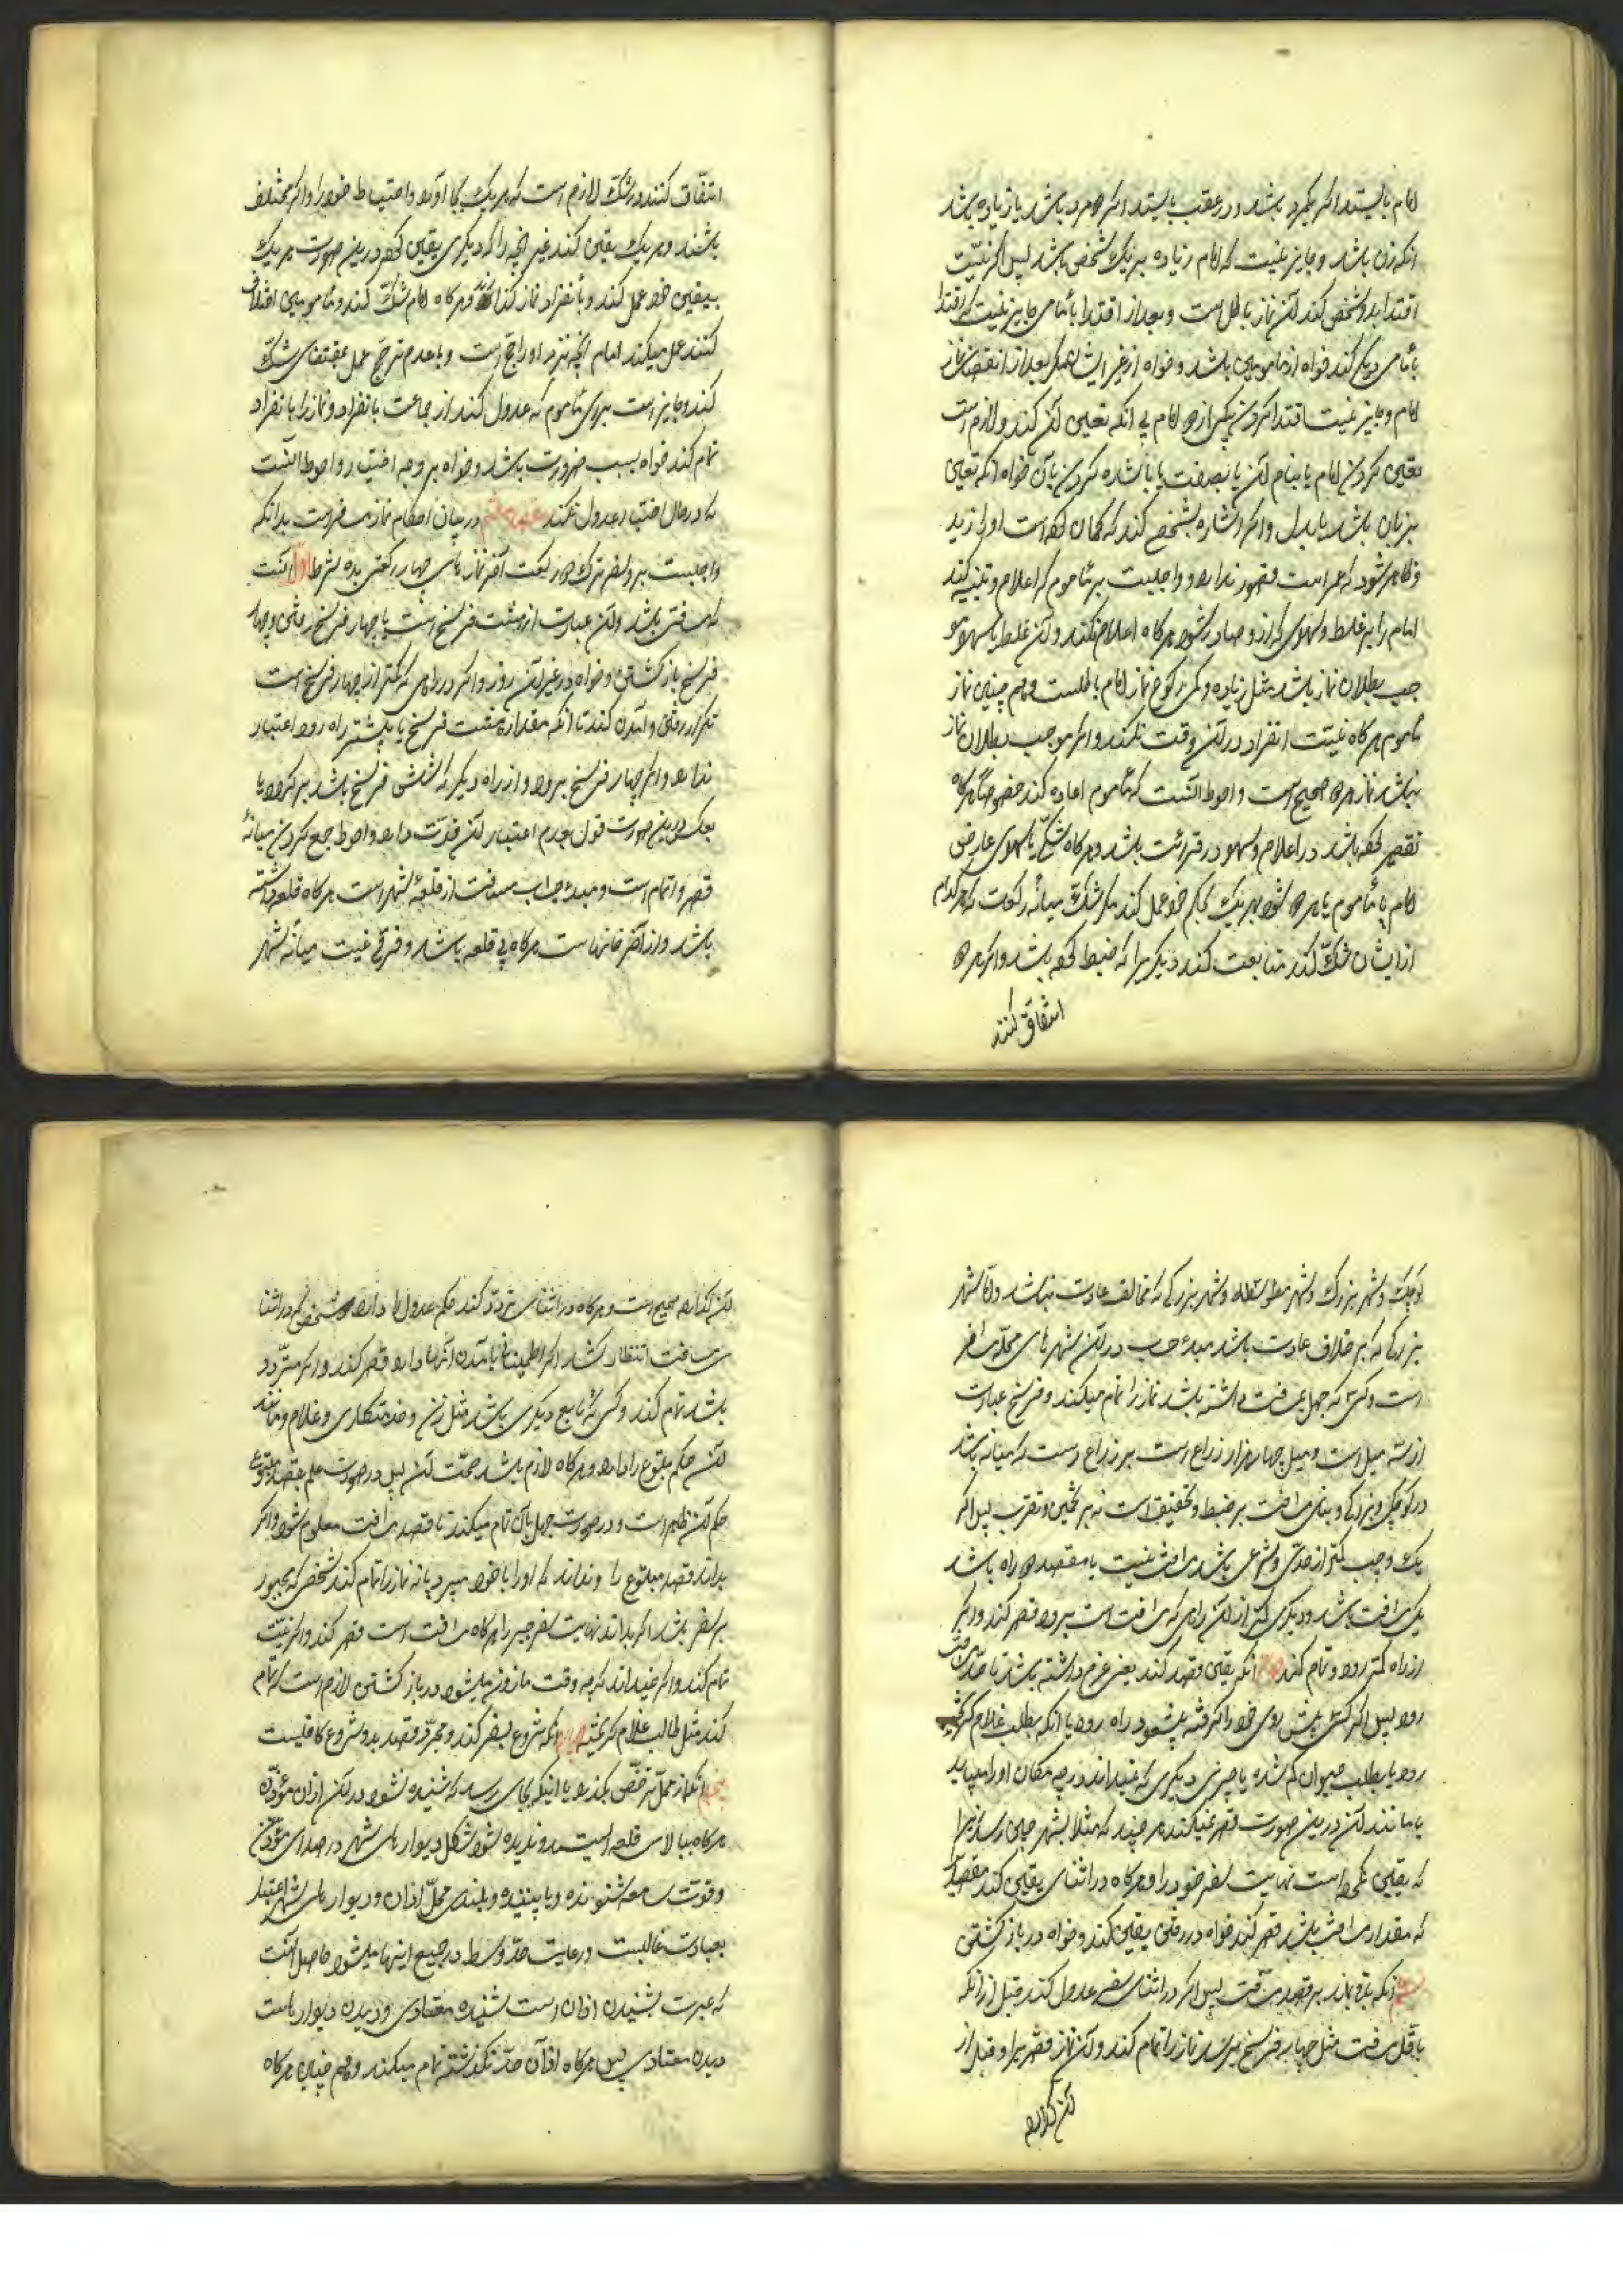 امام بایستد اگر یکمرد باشد و در عقب بایستد اگر دو مرد باشد یا زیاده باشد
آنکه زن باشد و جایز نیست که امام زیاده بر یک شخص باشد پس اگر نیت
اقتدا بدو شخص کند آن نماز باطل است و بعد از اقتدا بامامی جایز نیست که اقتدا
بامامی دیگر کند خواه از مأمومین باشد و خواه از غیر ایشان مگر بعد از انقضای نماز
امام و جایز نیست اقتدا کردن بیکی از دو امام بی آنکه تعیین آن کند و لازم است
تعیین کردن امام یا بنام آن یا بصفت یا باشاره کردن بآن خواه آنکه تعیین
بزبان باشد یا بدل و اگر اشاره بشخصی کند که گمان کرده است او را زید
و ظاهر شود که عمر است قصور ندارد و واجبست بر مأموم که اعلام و تنبیه کند
امام را بر غلط و سهوی که از او صادر شود هرگاه اعلام نکند و آن غلط یا سهو مو
جب بطلان نماز باشد مثل زیاده و کمی رکوع نماز امام باطلست و هم چنین نماز
مأموم هرگاه نیت انفراد در آن وقت نکند و اگر موجب بطلان نماز
نباشد نماز هر دو صحیح است و احوط آنست که مأموم اعاده کند خصوصا هرگاه
تقصیر کرده باشد در اعلام و سهو در قرائت باشد و هرگاه شکی یا سهوی عارض
امام یا مأموم یا هر دو شود هر یک بحکم خود عمل کند مگر شک میانه رکعت که هر کدام
از ایشان شک کند متابعت کند دیگریرا که ضبط کرده باشد و اگر هر دو
اتفاق کنند
اتفاق کنند در شک لازم است که هر یک بجا آورد احتیاط خود را و اگر مختلف
باشند و هر یک یقین کند غیر آنچه را که دیگری یقین کرده درین صورت هر یک
بیقین خود عمل کند و بانفراد نماز کند و هرگاه امام شک کند و مأمومین اختلاف
کنند عمل میکند امام آنچه نزد او راجح است و با عدم ترجیح عمل بمقتضای شک
کند و جایز است برای مأموم که عدول کند از جماعت بانفراد و نماز را بانفراد
تمام کند خواه بسبب ضرورت باشد و خواه بر وجه اختیار و احوط آنست
که در حال اختیار عدول نکند در بیان احکام نماز مسافرست بدانکه
واجبست بر مسافر ترک دو رکعت آخر نماز های چهار رکعتی بده شرط اول آنست
که مسافتی باشد و آن عبارت از هشت فرسخ است یا چهار فرسخ رفتن و چهار
فرسخ باز گشتن و خواه در غیر آن روز و اگر در راهی که کمتر از چهار فرسخ است
تکرار رفتن و آمدن کند تا آنکه مقدار هشت فرسخ یا بیشتر راه رود اعتبار
ندارد و اگر چهار فرسخ برود و از راه دیگر که شش فرسخ باشد بر گردد یا
بعکس درین صورت قول بعدم اعتبار آن قوت دارد و احوط جمع کردن میانۀ
قصر و اتمام است و مبدء حساب مسافت از قلعۀ شهر است هرگاه قلعه داشته
باشد و از آخر خانهاست هرگاه بی قلعه باشد و فرقی نیست میانه شهر
کوچک و شهر بزرگ و شهر متوسط و شهر بزرگی که مخالف عادت نباشد و اما شهر
بزرگی که بر خلاف عادت باشد مبدء حساب در آن شهر های محله مسافر
است و کسی که جهل بمسافت داشته باشد نماز را تمام میکند و فرسخ عبارت
از سه میل است و میل چهار هزار ذراع است بر ذراع دست که میانه باشد
در کوچکی و بزرگی و بنای مسافت بر ضبط و تحقیق است نه بر تخمین و تقریب پس اگر
یک وجب کمتر از حد شرعی باشد مسافت نیست یا مقصد دو راه باشد
یکی مسافت باشد و دیگری کمتر از آن راهی که مسافت است برود قصر کند و اگر
از راه کمتر رود تمام کند آنکه یقین قصد کند یعنی عزم داشته باشد تا حد مسافت
رود پس اگر کسی پیش روی خود را گرفته بیشعور راه رود یا آنکه بطلب غلام گریخته
رود یا بطلب حیوان گم شده یا چیزی دیگری که نمیداند در چه مکان او را مییابد
یا مانند آن درین صورت قصر نمیکند هر چند که مثلا بشهر چین رسد زیرا
که یقین نکرده است نهایت سفر خود را و هرگاه در اثنای یقین کند مقصد را
که مقدار مسافت باشد قصر کند خواه در رفتن یقین کند و خواه در باز گشتن
آنکه باقی بماند بر قصد مسافت پس اگر در اثنای سفر عدول کند قبل از آنکه
باقل مسافت مثل چهار فرسخ برسد نماز را تمام کند و آن نماز قصر را و قبل از
آن گذارده
آن گذارده صحیح است و هرگاه در اثنای تردد کند حکم عدول را دارد و شخصی که در اثنا
ی مسافت انتظار کشد اگر اطمینان بآمدن آنها دارد قصر کند و اگر متردد
باشد تمام کند و کسی که تابع دیگری باشد مثل زن و خدمتکاری و غلام و مانند
آن حکم متبوع را دارد و هرگاه لازم باشد متابعت آن پس در صورت علم بقصد متبوع
حکم آن ظاهر است و در صورت جهل بآن تمام میکند تا قصد مسافت معلوم شود و اگر
بداند قصد متبوع را و نداند که او را با خود میبرد یا نه نماز را تمام کند شخصی که مجبور
بر سفر باشد اگر بداند نهایت سفر جبر را هرگاه مسافت است قصر کند و اگر نیست
تمام کند و اگر نمیداند که چه وقت مأذون میشود در باز گشتن لازم است که تمام
کند مثل طالب غلام گریخته چهارم آنکه شروع بسفر کند و مجرد قصد بدون شروع کافیست
پنجم آنکه از محل ترخص بگذرد یا اینکه بجای رسد که شنیده نشود در آن اذان مؤذن
هرگاه ببالای قلعه ایستد و ندیده شود شکل دیوار های شهر در صدای مؤذن
و قوت سامعه شنونده و یا بیننده و بلندی محل اذان و دیوار های شهر اعتبار
بعادت غالبست و رعایت حد وسط در جمیع اینها میشود حاصل آنست
که عبرت بشنیدن اذان است شنیدن معتادی و دیدن دیوار هاست
دیدن معتادی پس هرگاه از آن حد نگذشته تمام میکند و هم چنین هرگاه